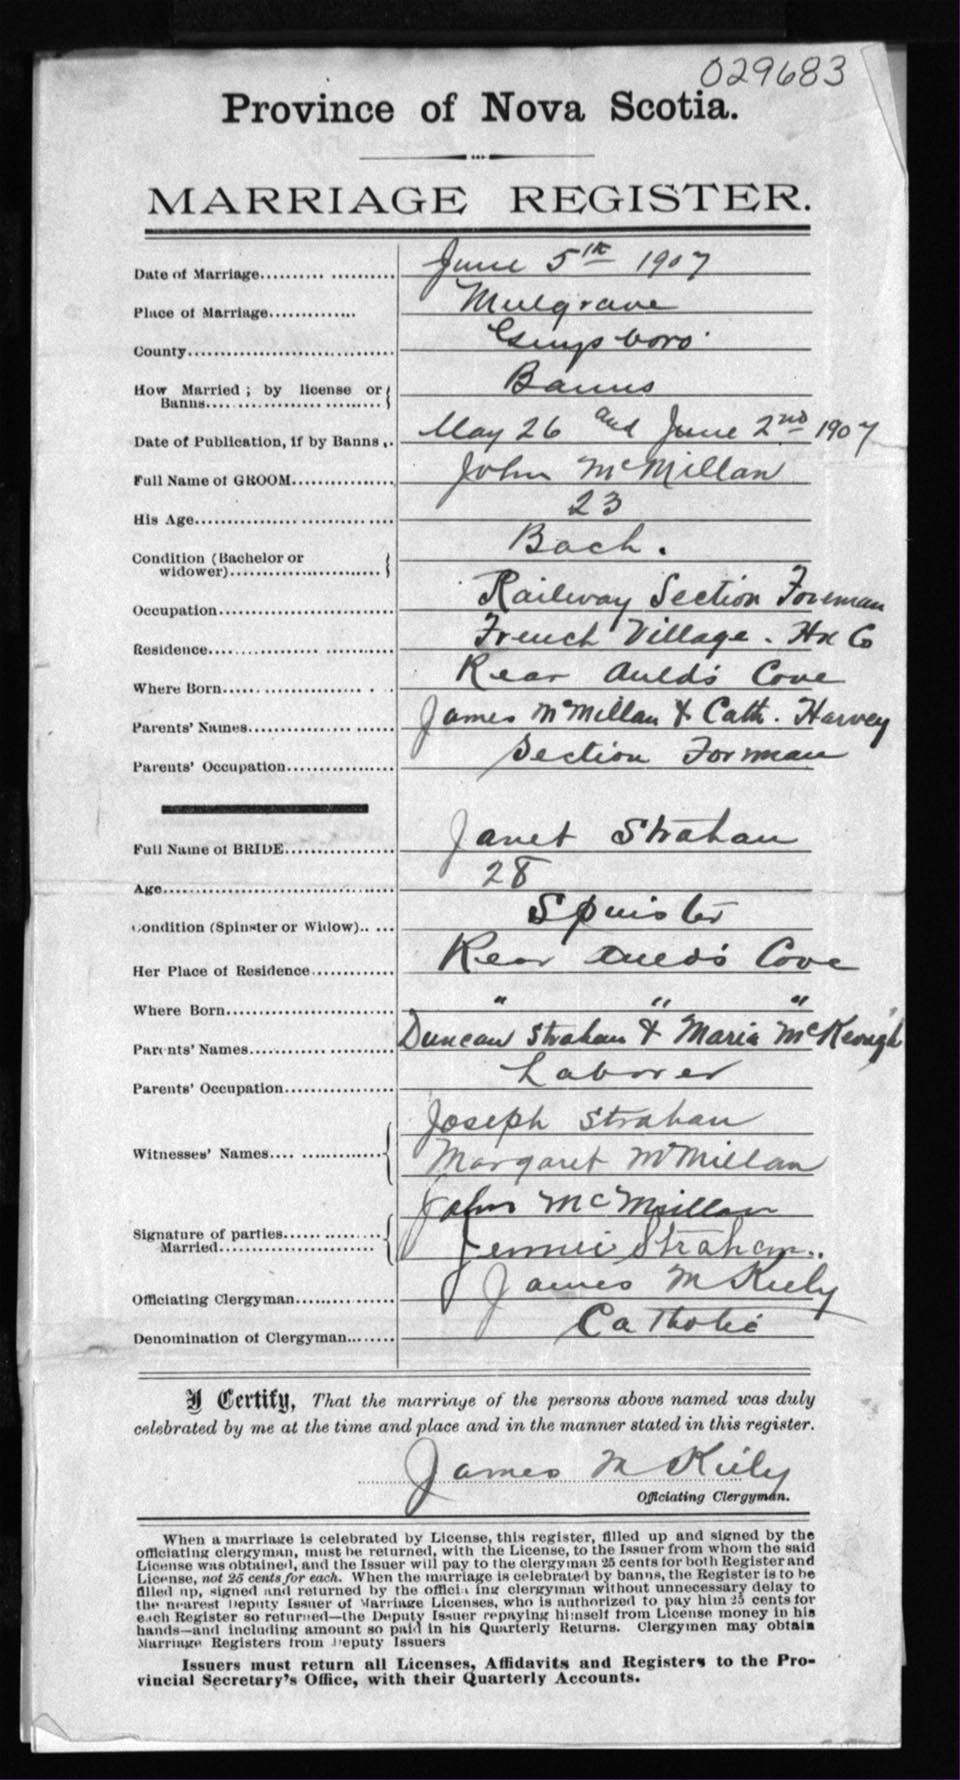 029683
Province of Nova Scotia.
MARRIAGE REGISTER.
Date of Marriage.................... June 5th 1907
Place of Marriage.............. Mulgrave
County.............................. Guysboro
How Married ; by license or
Banns........................ Banns
Date of Publication, if by Banns .. May 26 and June 2nd 1907
Full Name of GROOM............... John McMillan
His Age.............................. 23
Condition (Bachelor or
widower)...................... Bach.
Occupation.......................... Railway Section Foreman
Residence........................... French Village. Hx Co
Where Born........................ Rear Auld's Cove
Parents' Names..................... James McMillan & Cath. Harvey
Parents' Occupation................ Section Forman
Full Name of BRIDE................ Janet Strahan
Age.................................. 28
Condition (Spinster or Widow)..... Spinster
Her Place of Residence............ Rear Auld's Cove
Where Born........................ " " "
Parents' Names..................... Duncan Strahan & Maria McKeough
Parents' Occupation................ Laborer
Witnesses' Names.... ............. Joseph Strahan
Margaret McMillan
Signature of parties............... John McMillan
Married........................ Jennie Strahan..
Officiating Clergyman.............. James M Kiely
Denomination of Clergyman....... Catholic
I Certify, That the marriage of the persons above named was duly
celebrated by me at the time and place and in the manner stated in this register.
James M Kiely
Officiating Clergyman.
When a marriage is celebrated by License, this register, filled up and signed by the
officiating clergyman, must be returned, with the License, to the Issuer from whom the said
License was obtained, and the Issuer will pay to the clergyman 25 cents for both Register and
License, not 25 cents for each. When the marriage is celebrated by banns, the Register is to be
filled up, signed and returned by the officiating clergyman without unnecessary delay to
the nearest Deputy Issuer of Marriage Licenses, who is authorized to pay him 25 cents for
each Register so returned—the Deputy Issuer repaying himself from License money in his
hands—and including amount so paid in his Quarterly Returns. Clergymen may obtain
Marriage Registers from Deputy Issuers
Issuers must return all Licenses, Affidavits and Registers to the Pro-
vincial Secretary's Office, with their Quarterly Accounts.